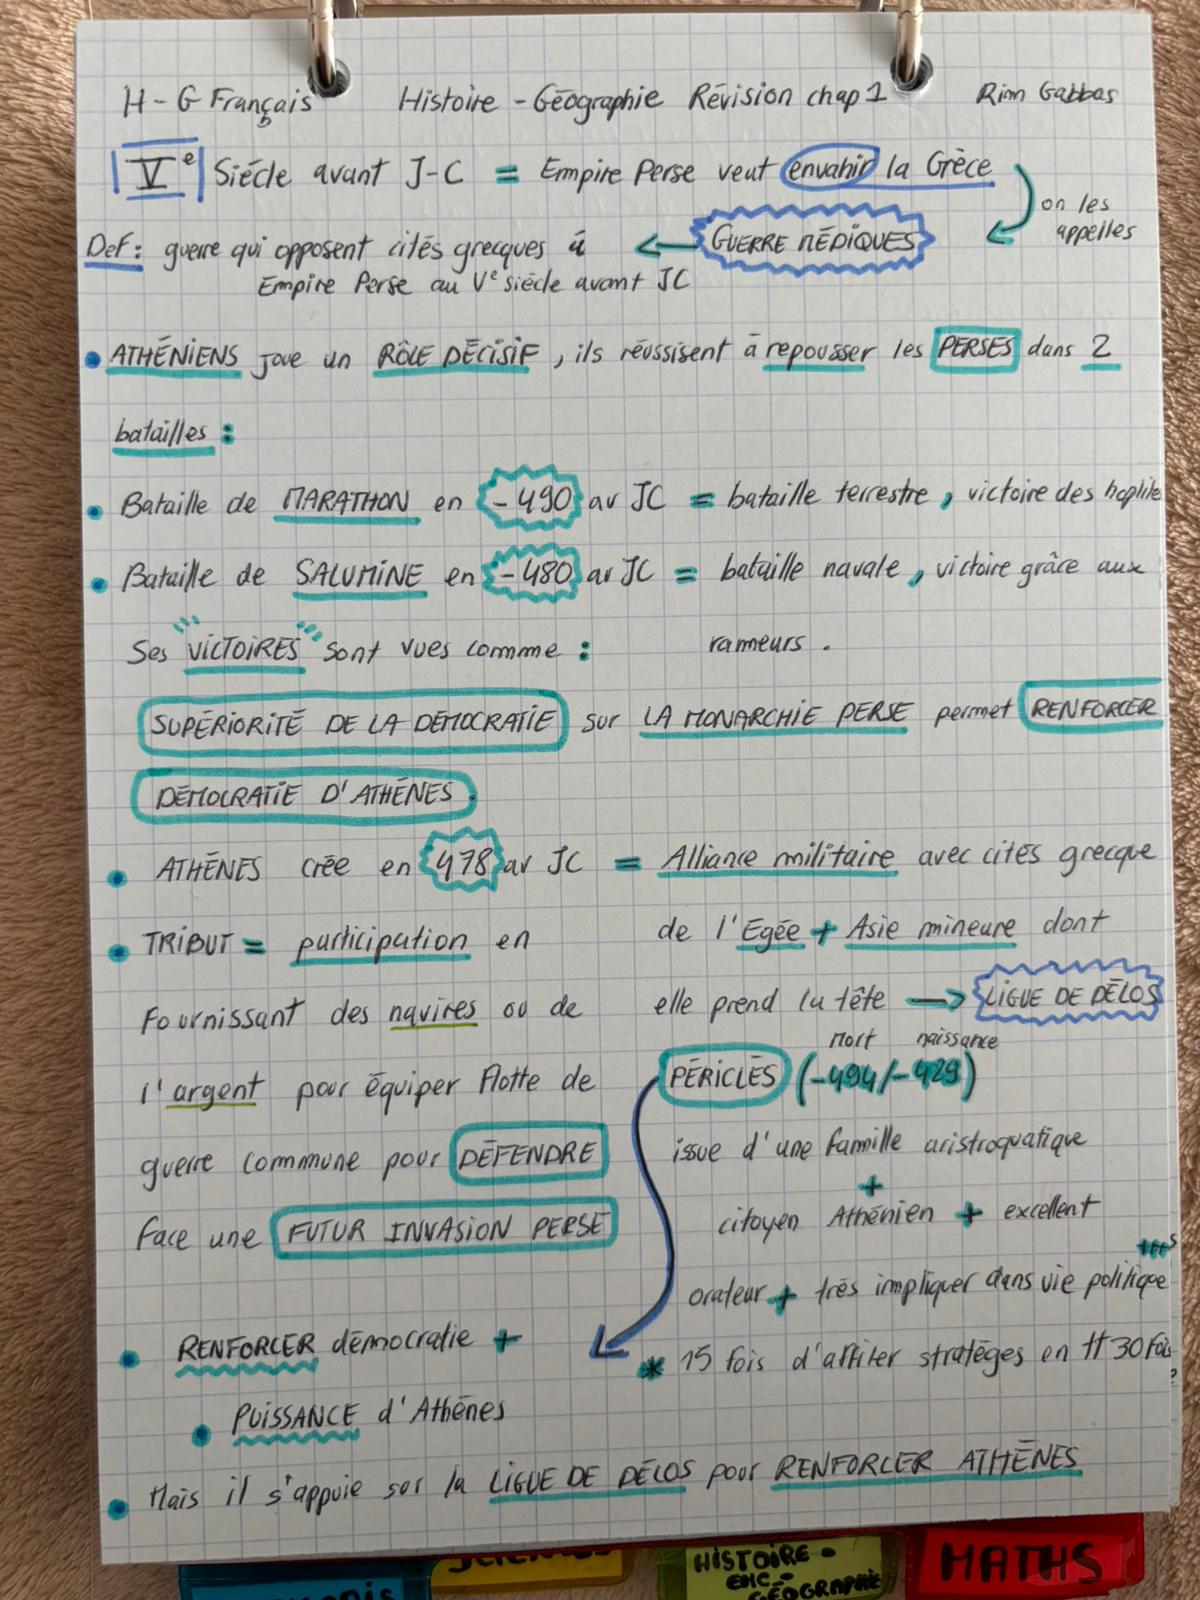 H - G Français Histoire - Géographie Révision chap 1 Rim Gabbas
Ve Siécle avant J-C = Empire Perse veut envahir la Gréce
on les
appelles
GUERRE MÉDIQUES
Def : guerre qui opposent cités grecques à
Empire Perse au Ve siécle avant JC
• ATHÉNIENS joue un RÔLE DÉCISIF , ils réussisent à repousser les PERSES dans 2
batailles :
• Bataille de MARATHON en -490 av JC = bataille terrestre , victoire des hoplite
• Bataille de SALUMINE en -480 av JC = bataille navale , victoire grâce aux
rameurs .
Ses "VICTOIRES" sont vues comme :
SUPÉRIORITÉ DE LA DÉMOCRATIE sur LA MONARCHIE PERSE permet RENFORCER
DÉMOCRATIE D'ATHÉNES.
• ATHÉNES crée en 478 av JC = Alliance militaire avec cités grecque
de l'Egée + Asie mineure dont
elle prend la tête → LIGUE DE DÉLOS
• TRIBUT = participation en
fournissant des navires ou de
l'argent pour équiper flotte de
guerre commune pour DÉFENDRE
face une FUTUR INVASION PERSE
mort naissance
PÉRICLÉS (-494/-429)
issue d'une famille aristroquatique
+
citoyen Athénien + excellent
orateur + trés impliquer dans vie politique
* 15 fois d'affiler stratéges en tt 30 fois
• RENFORCER démocratie +
• PUISSANCE d'Athénes
• Mais il s'appuie sur la LIGUE DE DÉLOS pour RENFORCER ATHÉNES
HISTOIRE -
EMC -
GÉOGRAPHIE
MATHS